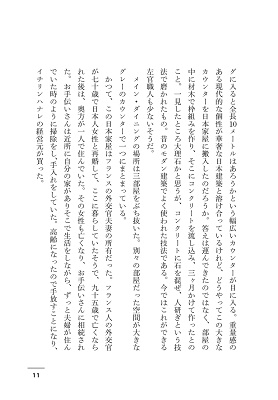 グに入ると全長10メートルはあろうかという幅広いカウンターが目に入る。重量感の
ある現代的な個性が華奢な日本建築と溶け合っているけれど、どうやってこの大きな
カウンターを日本家屋に搬入したのだろうか。答えは運んできたのではなく、部屋の
中に材木で枠組みを作り、そこにコンクリートを流し込み、三ヶ月かけて作ったとの
こと。一見したところ大理石かと思うが、コンクリートに石を混ぜ、人研ぎという技
法で磨かれたもの。昔のモダン建築でよく使われた技法である。今ではこれができる
左官職人も少ないそうだ。
メイン・ダイニングの場所は三部屋をぶち抜いた。別々の部屋だった空間が大きな
グレーのカウンターで一つにまとまっている。
かつて、この日本家屋はフランスの外交官夫妻の所有だった。フランス人の外交官
が七十歳で日本人女性と再婚して、ここに暮らしていたそうで、九十五歳で亡くなら
れた後は、奥方が一人で住んでいた。その女性も亡くなり、お手伝いさんに相続され
た。お手伝いさんは近所に自分の家がありそこで生活をしながら、ずっと夫婦が住ん
でいた時のように掃除をし、手入れをしていた。高齢になったので手放すことになり、
イチリンハナレの経営元が買った。
11